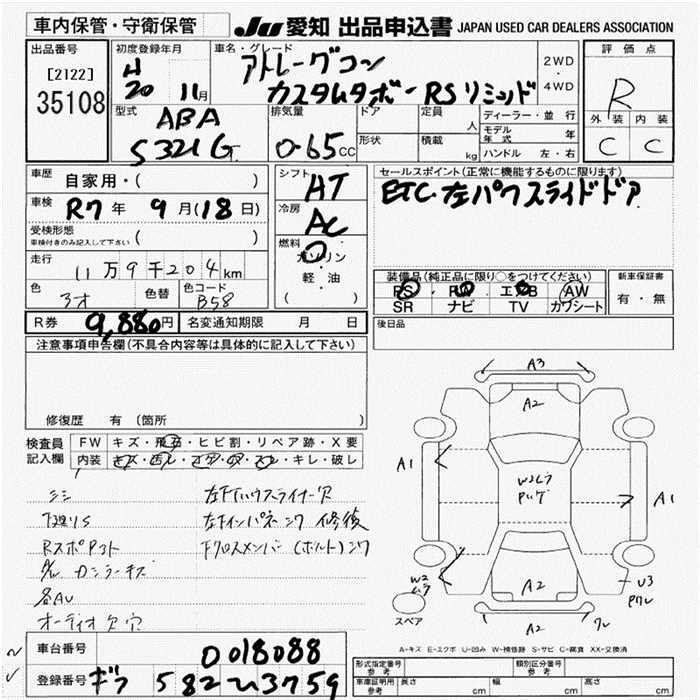 車内保管・守衛保管
JU 愛知 出品申込書 JAPAN USED CAR DEALERS ASSOCIATION
出品番号
[2122]
35108
初度登録年月
H
20 11月
車名・グレード
アトレーワゴン
カスタムターボーRSリミテッド
2WD
・
4WD
評価点
R
外装 内装
C C
型式
ABA
S321G
排気量
0.65CC
ドア
形状
定員 人
積載 kg
ディーラー・並行
モデル年式 年
ハンドル 左・右
車歴 自家用・( )
車検 R7年 9月(18日)
受検形態
車検付きのみ記入して下さい ( )
走行 11万9千204km
色 クオ 色替 色コード B58
シフト AT
冷房 AC
燃料
ガソリン
軽・油
( )
セールスポイント(正常に機能するものに限ります)
ETC.左パワスライドドア
装備品(純正品に限り○をつけてください)
PS・PW・エアB・AW
SR ナビ TV カワシート
新車保証書
有・無
R券 9,880円 名変通知期限 月 日
後日品
注意事項申告欄(不具合内容等は具体的に記入して下さい)
修復歴 有 (箇所 )
検査員
記入欄
FW キズ・飛石・ヒビ割・リペア跡・X要
内装 キズ・汚レ・コゲ・穴・スレ・キレ・破レ
左下インパネ 修復
下クロスメンバー(ボルト)
各AU
オーディオ欠 穴
A3
A2
A1
A1
A2
A2
W2
U3
スペア
A-キズ E-エクボ U-凹み W-補修跡 S-サビ C-腐食 XX-交換済
車台番号 0018088
登録番号 ギフ 582 3759
形式指定番号
参考
類別区分番号
参考
車庫証明用
参考
長さ cm 幅 cm 高さ cm